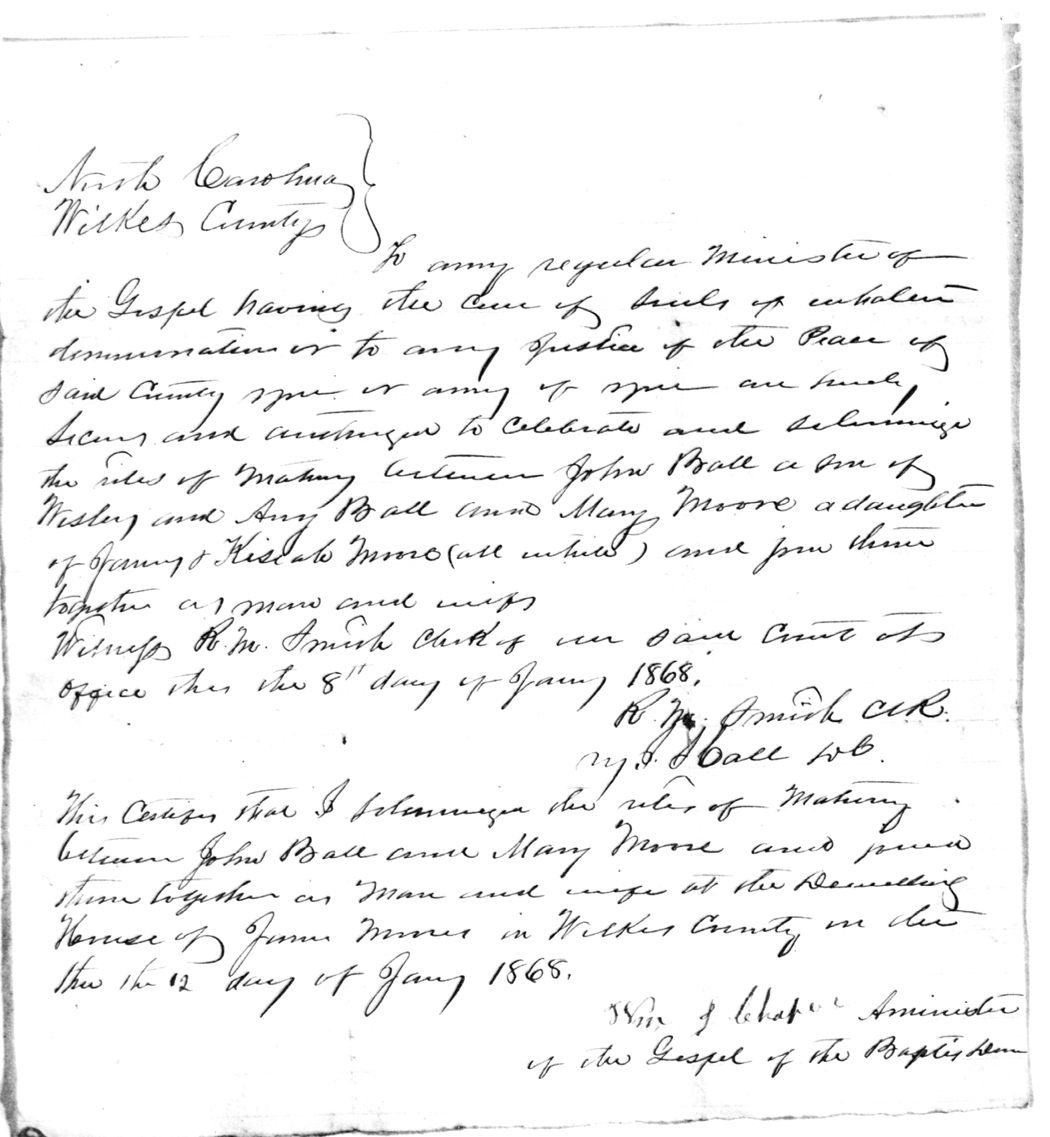 North Carolina
Wilkes County
To any regular Minister of
the Gospel having the cure of Souls of whatever
denomination or to any Justice of the Peace of
said County you or any of you are hereby
Licens and authorized to Celebrate and solemnize
the rites of Matrimy between John Ball a son of
Wesley and Any Ball and Mary Moore a daughter
of James & Moore (all white) and join them
together as man and wife
Witness R. M. Smith Clerk of our said Court at
office this the 8th day of Jany 1868.
R. M. Smith Clk.
Call
This Certifies that I solemnized the rites of Matrimy
between John Ball and Mary Moore and joined
them together as Man and wife at the Dwelling
House of James Moores in Wilkes County on
this the 12 day of Jany 1868.
Wm J A minister
of the Gospel of the Baptis Denm